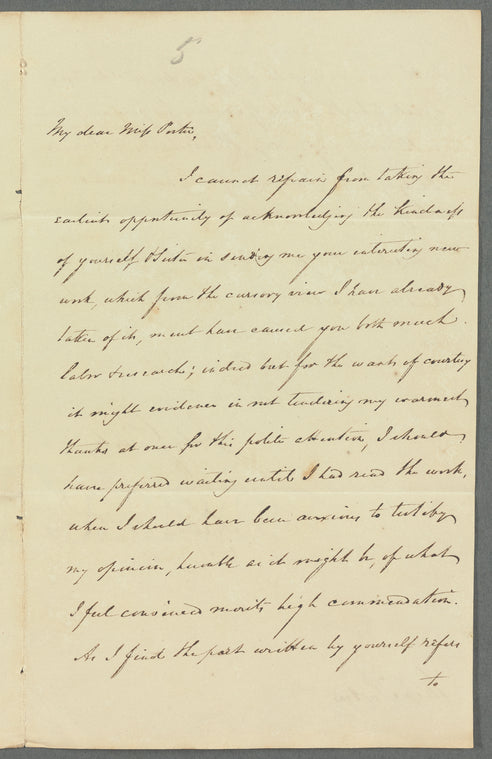 5
My dear Miss Porter,
I cannot refrain from taking the
earliest opportunity of acknowledging the kindness
of yourself & Sister in sending me your interesting new
work, which from the cursory view I have already
taken of it, must have caused you both much
labor & research; indeed but for the want of courtesy
it might evidence in not tendering my warmest
thanks at once for this polite attention, I should
have preferred waiting until I had read the work,
when I should have been anxious to testify
my opinion, humble as it might be, of what
I feel convinced merits high commendation.
As I find the part written by yourself refers
to